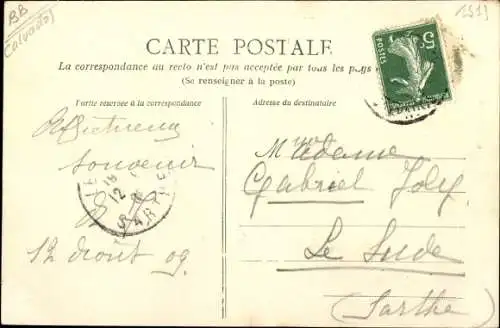 BB
(Calvados)
CARTE POSTALE
La correspondance au recto n'est pas acceptée par tous les pays
(Se renseigner à la poste)
Partie réservée à la correspondance
Adresse du destinataire
POSTES
5
Affectueux
souvenir
12 Août 09
Madame
Gabriel Joly
Le Lude
(Sarthe)